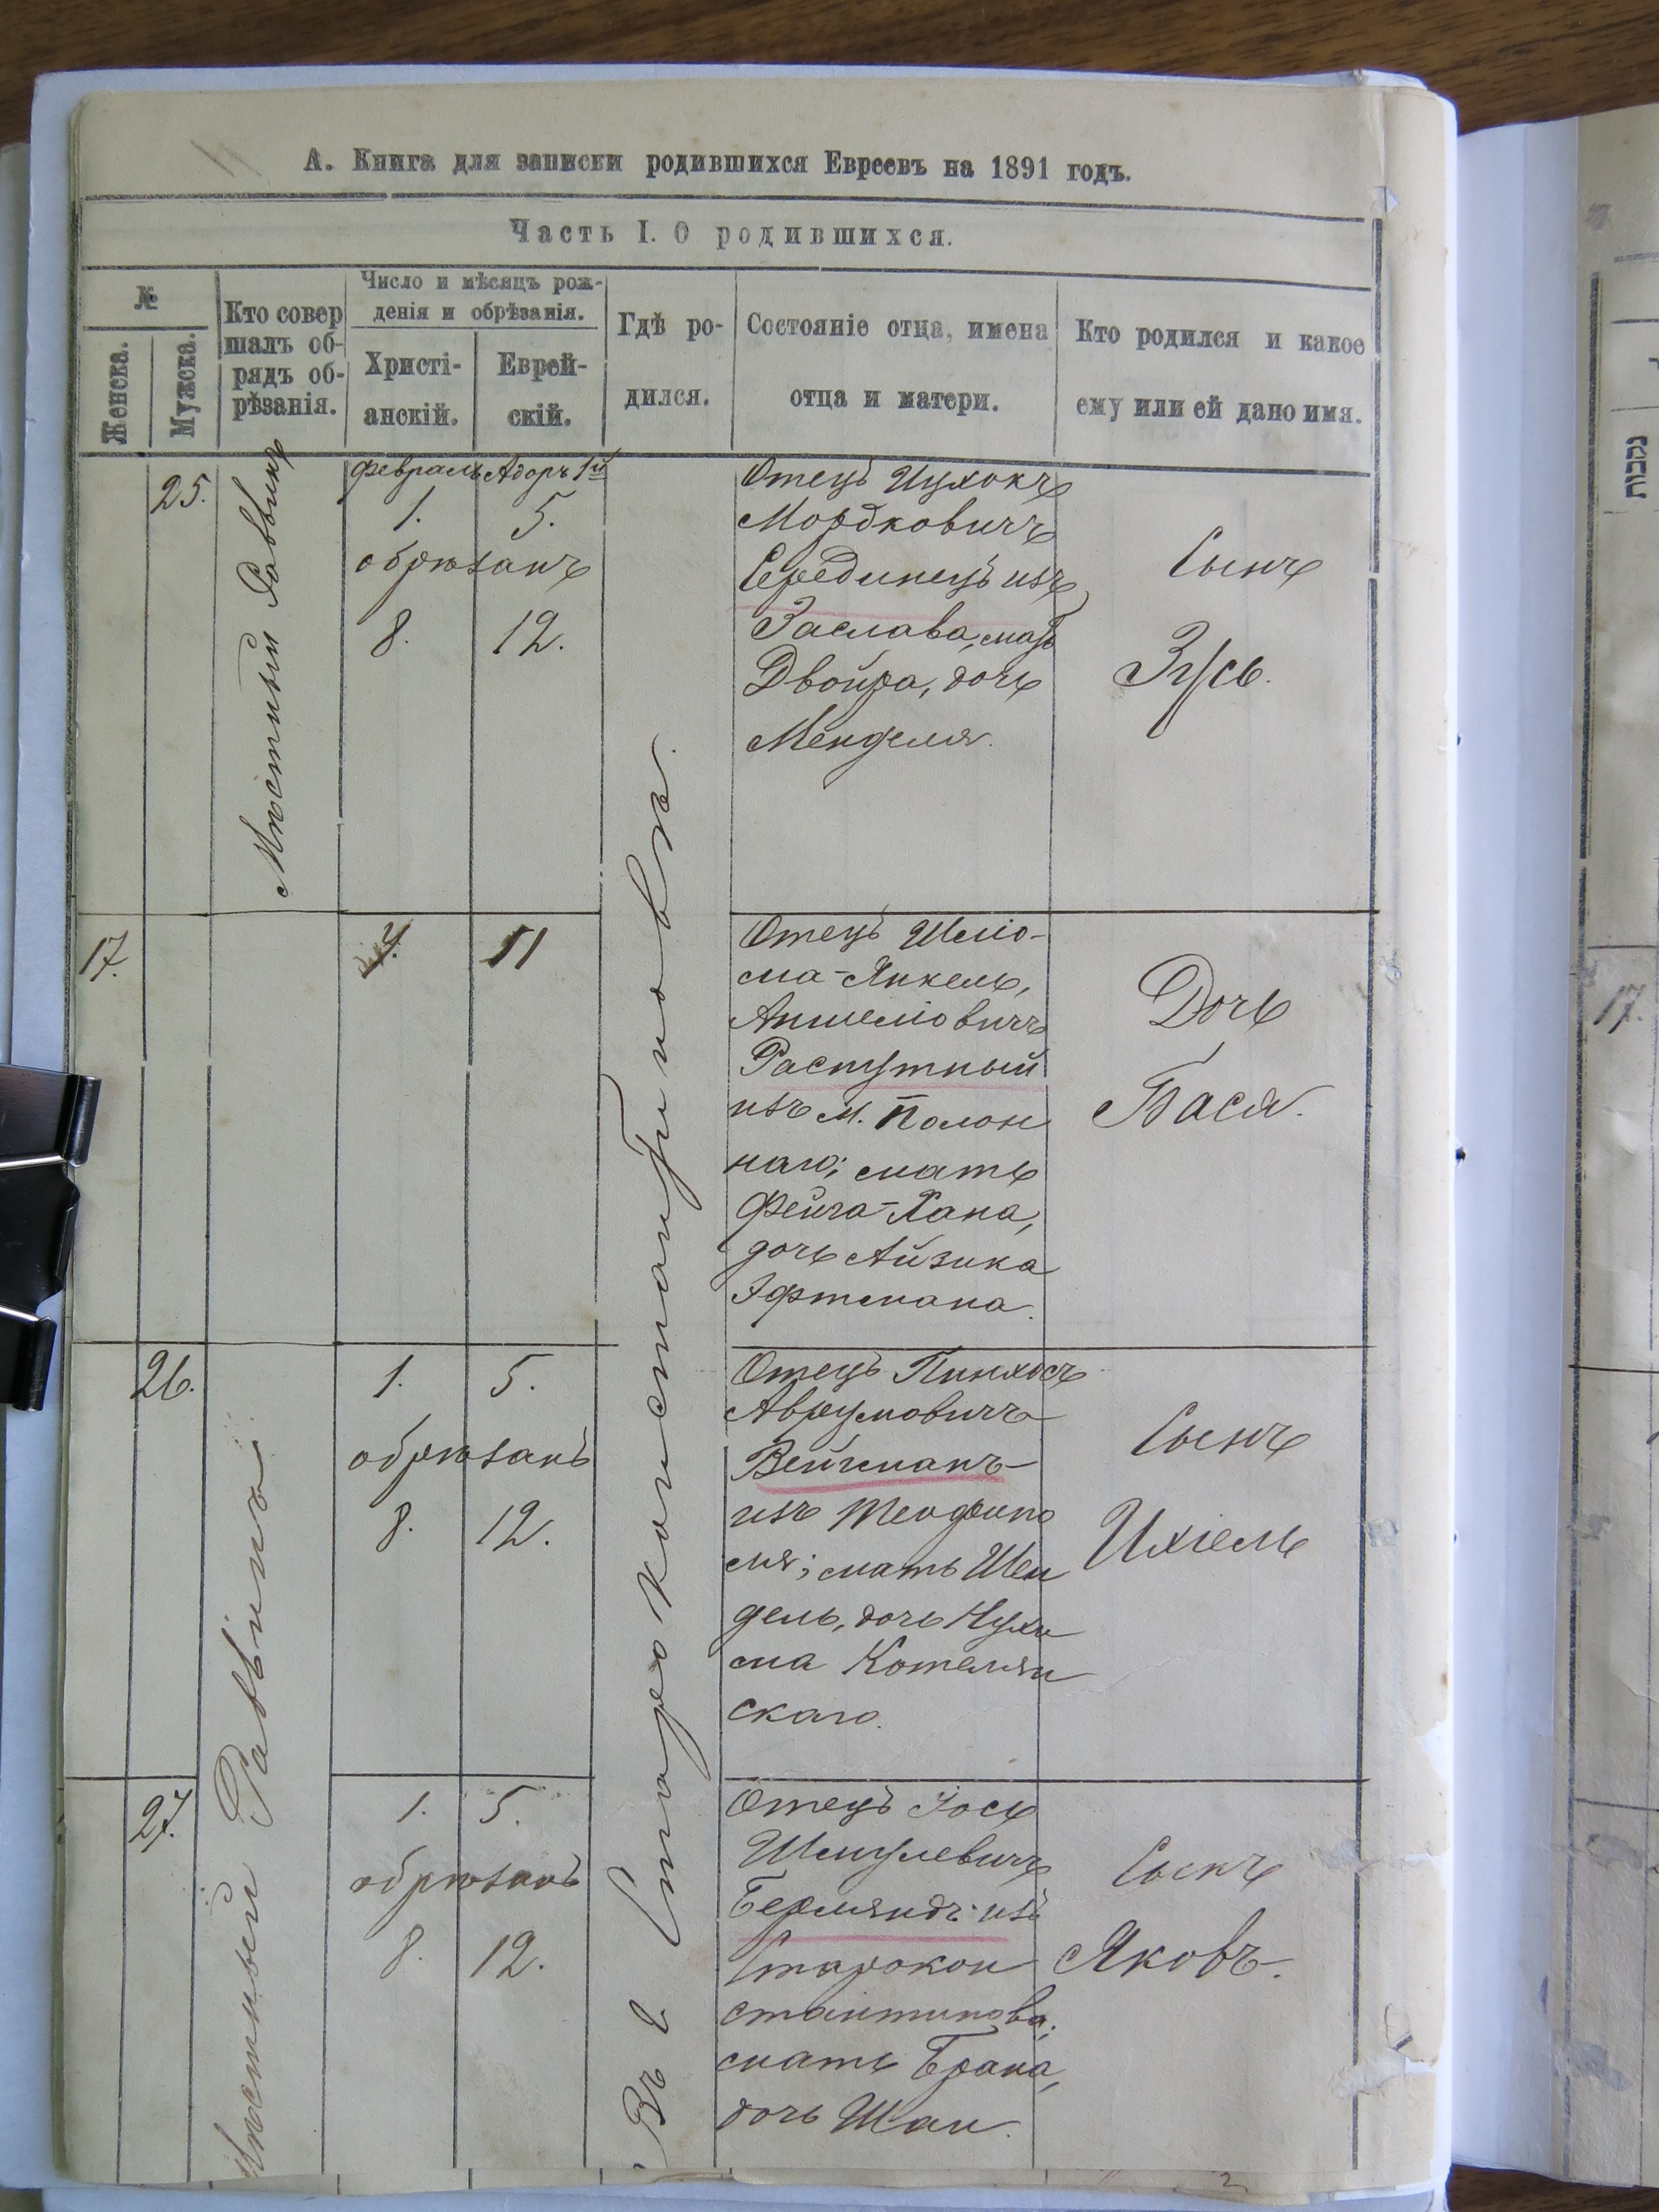 А. Книга для записки родившихся Евреевъ на 1891 годъ.
Часть I. О родившихся.
№
Женска.
Мужска.
Кто совер
шалъ об-
рядъ об-
рѣзанія.
Число и мѣсяцъ рож-
денія и обрѣзанія.
Христі-
анскій.
Еврей-
скій.
Гдѣ ро-
дился.
Состояніе отца, имена
отца и матери.
Кто родился и какое
ему или ей дано имя.
25.
Мѣстный Раввинъ
Февраль Адоръ 1й
1. 5.
обрѣзанъ
8. 12.
Въ г. Староконстантиновѣ.
Отецъ Ицхокъ
Мордковичъ
Серединецъ изъ
Заслава, мать
Двойра, дочь
Менделя.
Сынъ
Зусь.
17.
11
Отецъ Шліо-
ма-Янкель,
Аншеліовичъ
Распутный
изъ м. Полон
наго; мать
Фейга-Хана,
дочь Айзика
Гфтмана.
Дочь
Бася.
26.
Мѣстный Раввинъ
1. 5.
обрѣзанъ
8. 12.
Отецъ Пинхосъ
Аврумовичъ
Вейцманъ
изъ Теофипо
ля; мать Шен
дель, дочь Нухи
ма Котлян
скаго.
Сынъ
Ихіель
27.
1. 5.
обрѣзанъ
8. 12.
Отецъ Іось
Шмулевичъ
Берляндъ изъ
Старокон
стантинова;
мать Брана,
дочь Шаи.
Сынъ
Яковъ.
17.
נקבות